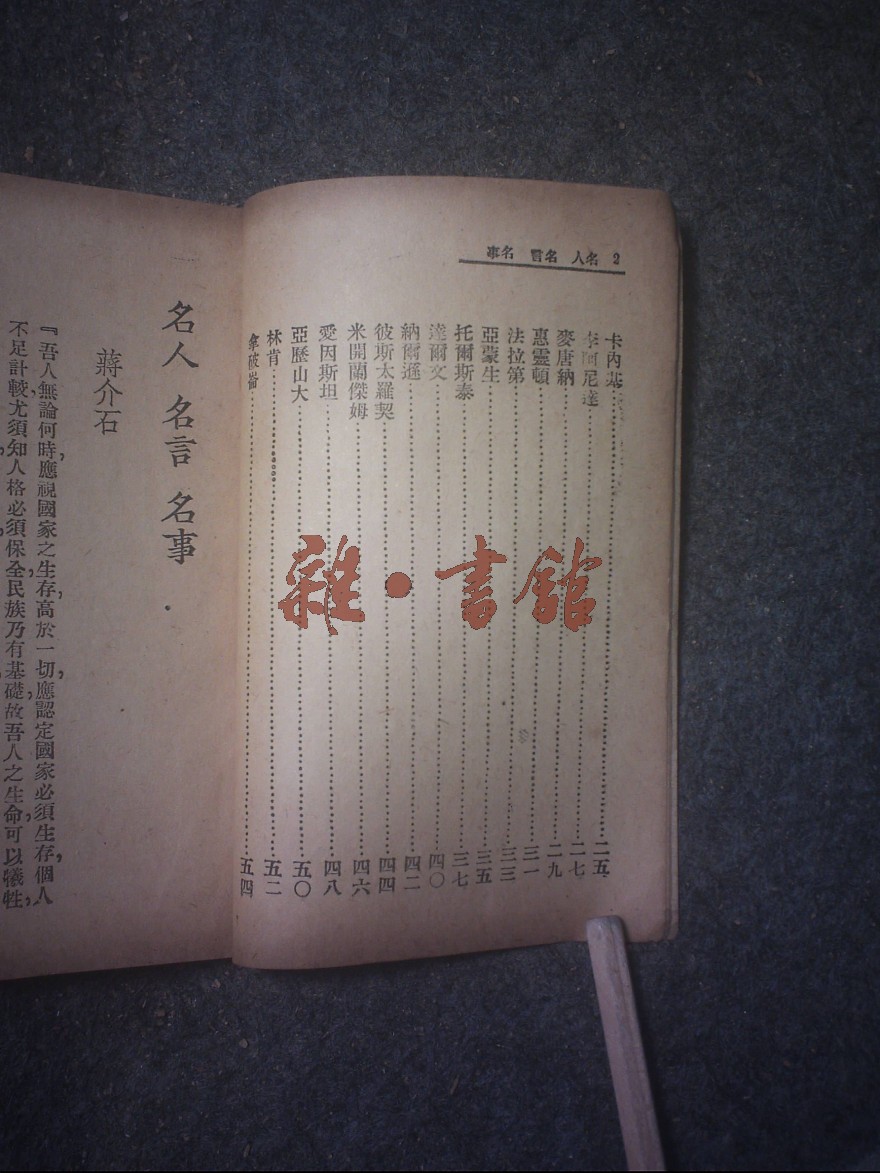 2 名人 名言 名事
卡內基 二五
李阿尼達 二七
麥唐納 二九
惠靈頓 三一
法拉第 三三
亞蒙生 三五
托爾斯泰 三七
達爾文 四〇
納爾遜 四二
彼斯太羅契 四四
米開蘭傑姆 四六
愛因斯坦 四八
亞歷山大 五〇
林肯 五二
拿破崙 五四
雜·書館
名人 名言 名事
蔣介石
『吾人無論何時,應視國家之生存高於一切,應認定國家必須生存,個人
不足計較,尤須知人格必須保全,民族乃有基礎,故吾人之生命可以犧牲,